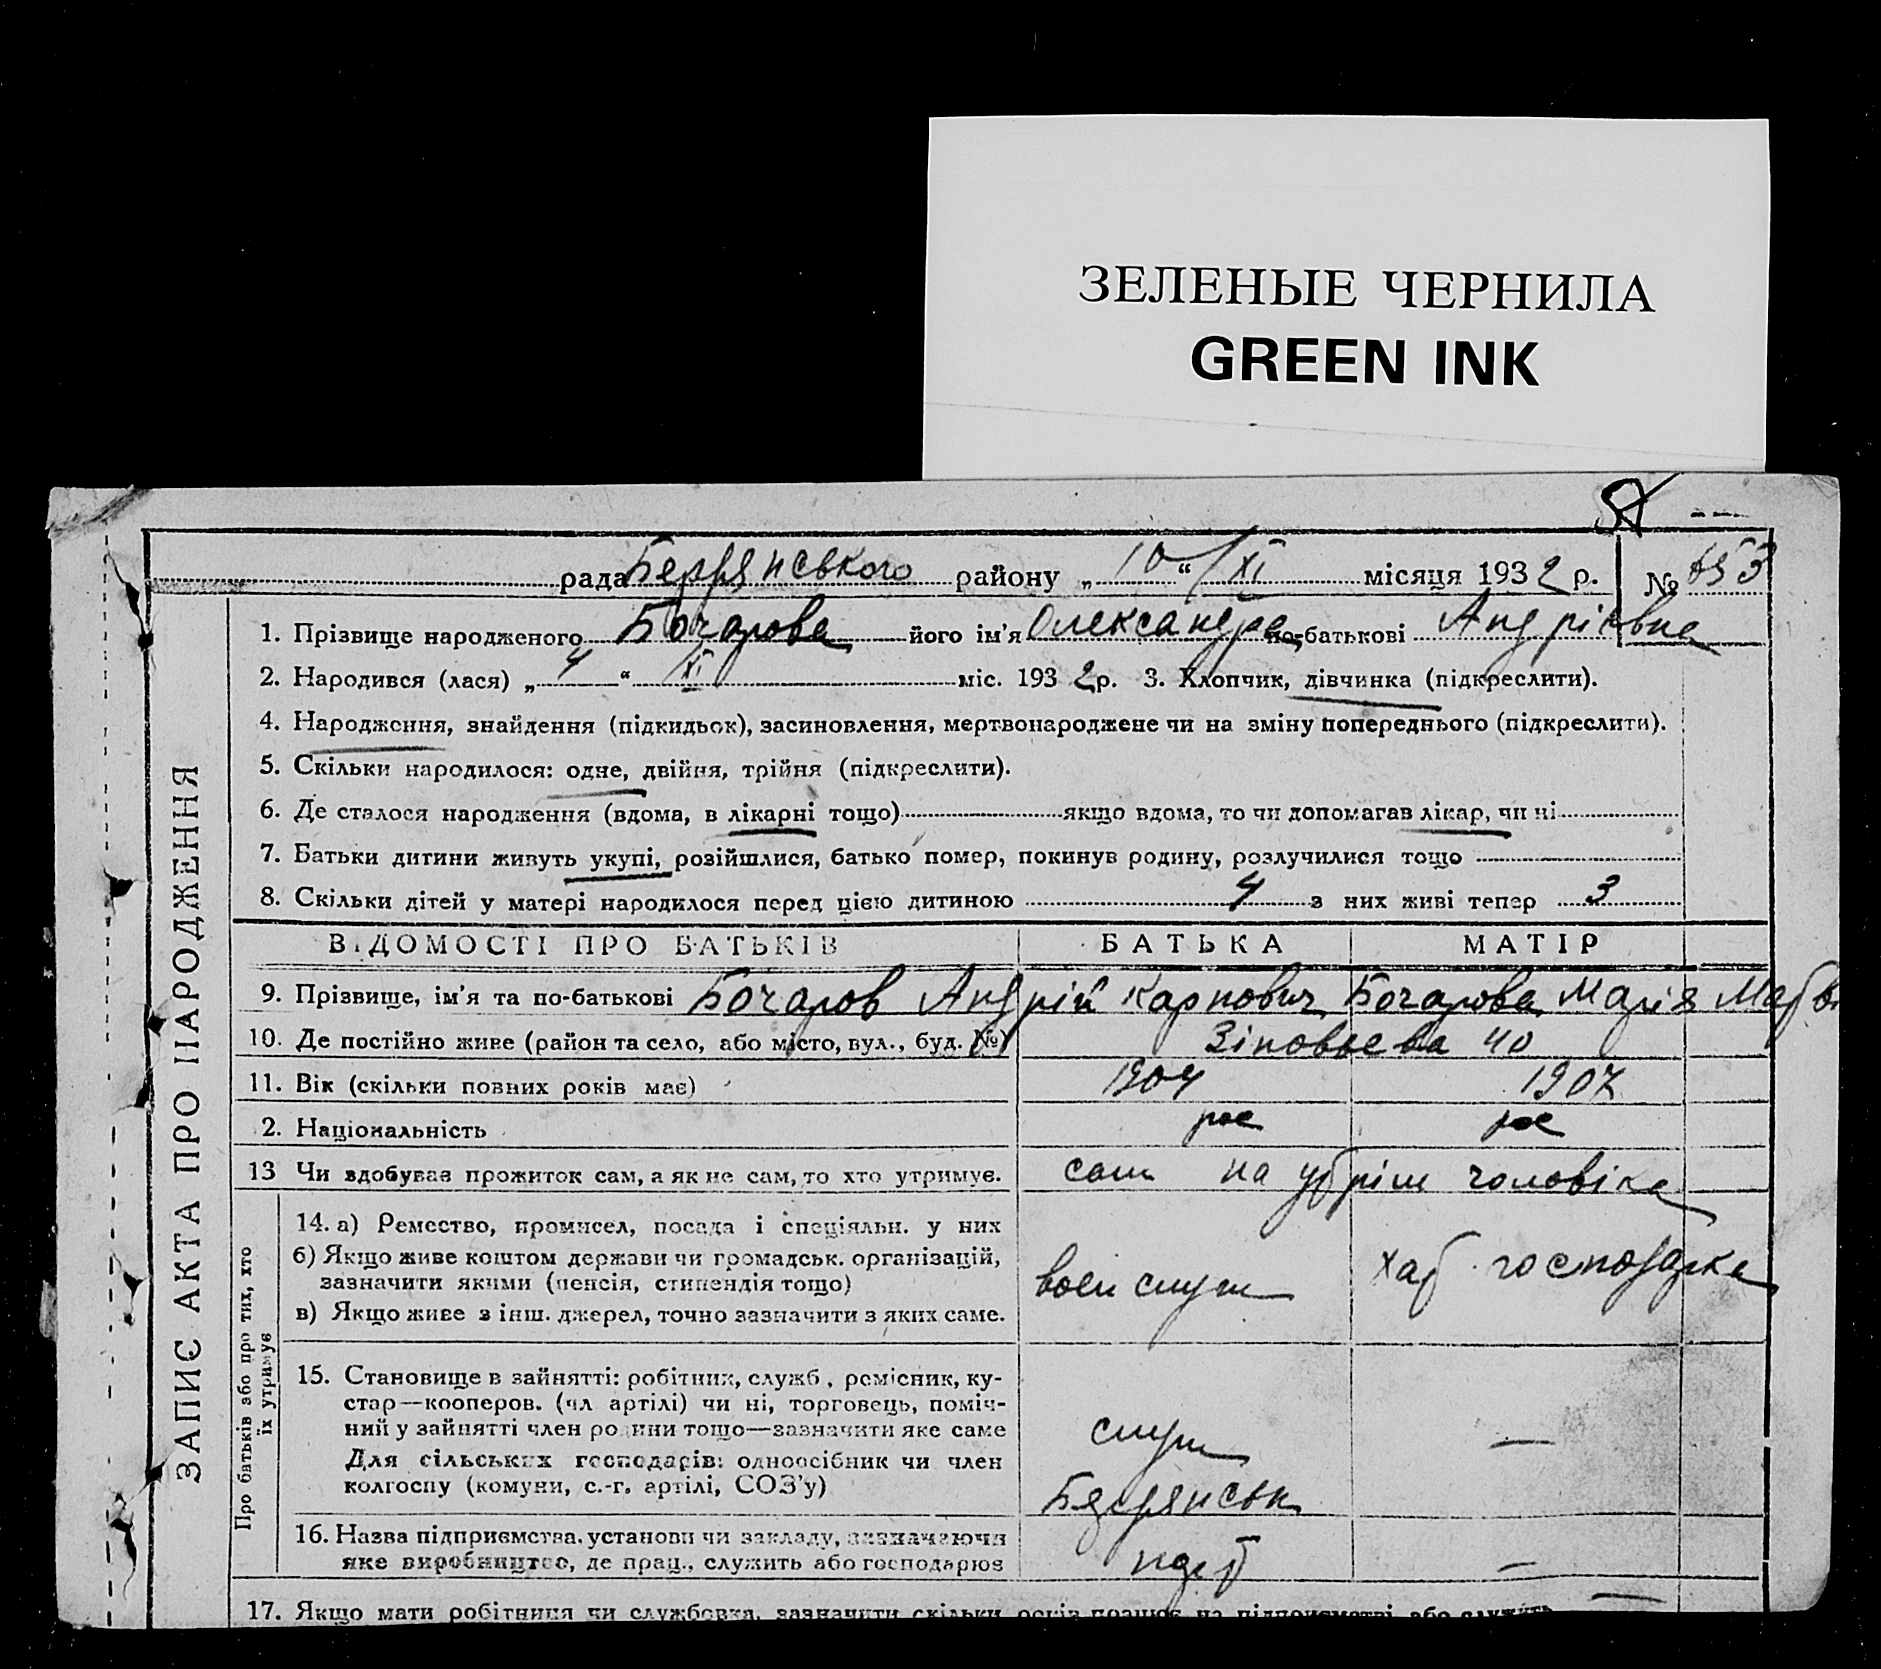 ЗЕЛЕНЫЕ ЧЕРНИЛА
GREEN INK
рада Бердянського району „ 10 “ XI місяця 1932 р. № 653
1. Прізвище народженого Бочарова його ім'я Олександра по-батькові Андріївна
2. Народився (лася) „ 4 “ XI міс. 1932 р. 3. Хлопчик, дівчинка (підкреслити).
4. Народження, знайдення (підкидьок), засиновлення, мертвонароджене чи на зміну попереднього (підкреслити).
5. Скільки народилося: одне, двійня, трійня (підкреслити).
6. Де сталося народження (вдома, в лікарні тощо) якщо вдома, то чи допомагав лікар, чи ні
7. Батьки дитини живуть укупі, розійшлися, батько помер, покинув родину, розлучилися тощо
8. Скільки дітей у матері народилося перед цією дитиною 4 з них живі тепер 3
ВІДОМОСТІ ПРО БАТЬКІВ БАТЬКА МАТІР
9. Прізвище, ім'я та по-батькові Бочаров Андрій Карпович Бочарова Марія
10. Де постійно живе (район та село, або місто, вул., буд. №) Зіновьєва 40
11. Вік (скільки повних років має) 1904 1907
2. Національність рос рос
13 Чи здобував прожиток сам, а як не сам, то хто утримує. сам на утрім чоловіка
14. а) Ремество, промисел, посада і спеціяльн. у них
б) Якщо живе коштом держави чи громадськ. організацій,
зазначити якими (пенсія, стипендія тощо)
воен служ хат. господарка
в) Якщо живе з інш. джерел, точно зазначити з яких саме.
15. Становище в зайнятті: робітник, служб., ремісник, ку-
стар—кооперов. (чл артілі) чи ні, торговець, поміч-
ний у зайнятті член родини тощо—зазначити яке саме
служ —
Для сільських господарів: одноосібник чи член
колгоспу (комуни, с.-г. артілі, СОЗ'у)
Бердянськ
16. Назва підприємства, установи чи закладу, зазначаючи
яке виробництво, де прац., служить або господарює
—
17. Якщо мати робітниця чи службовка, зазначити скільки років працює на підприємстві або служить —
ЗАПИС АКТА ПРО НАРОДЖЕННЯ
Про батьків або про тих, хто
їх утримує